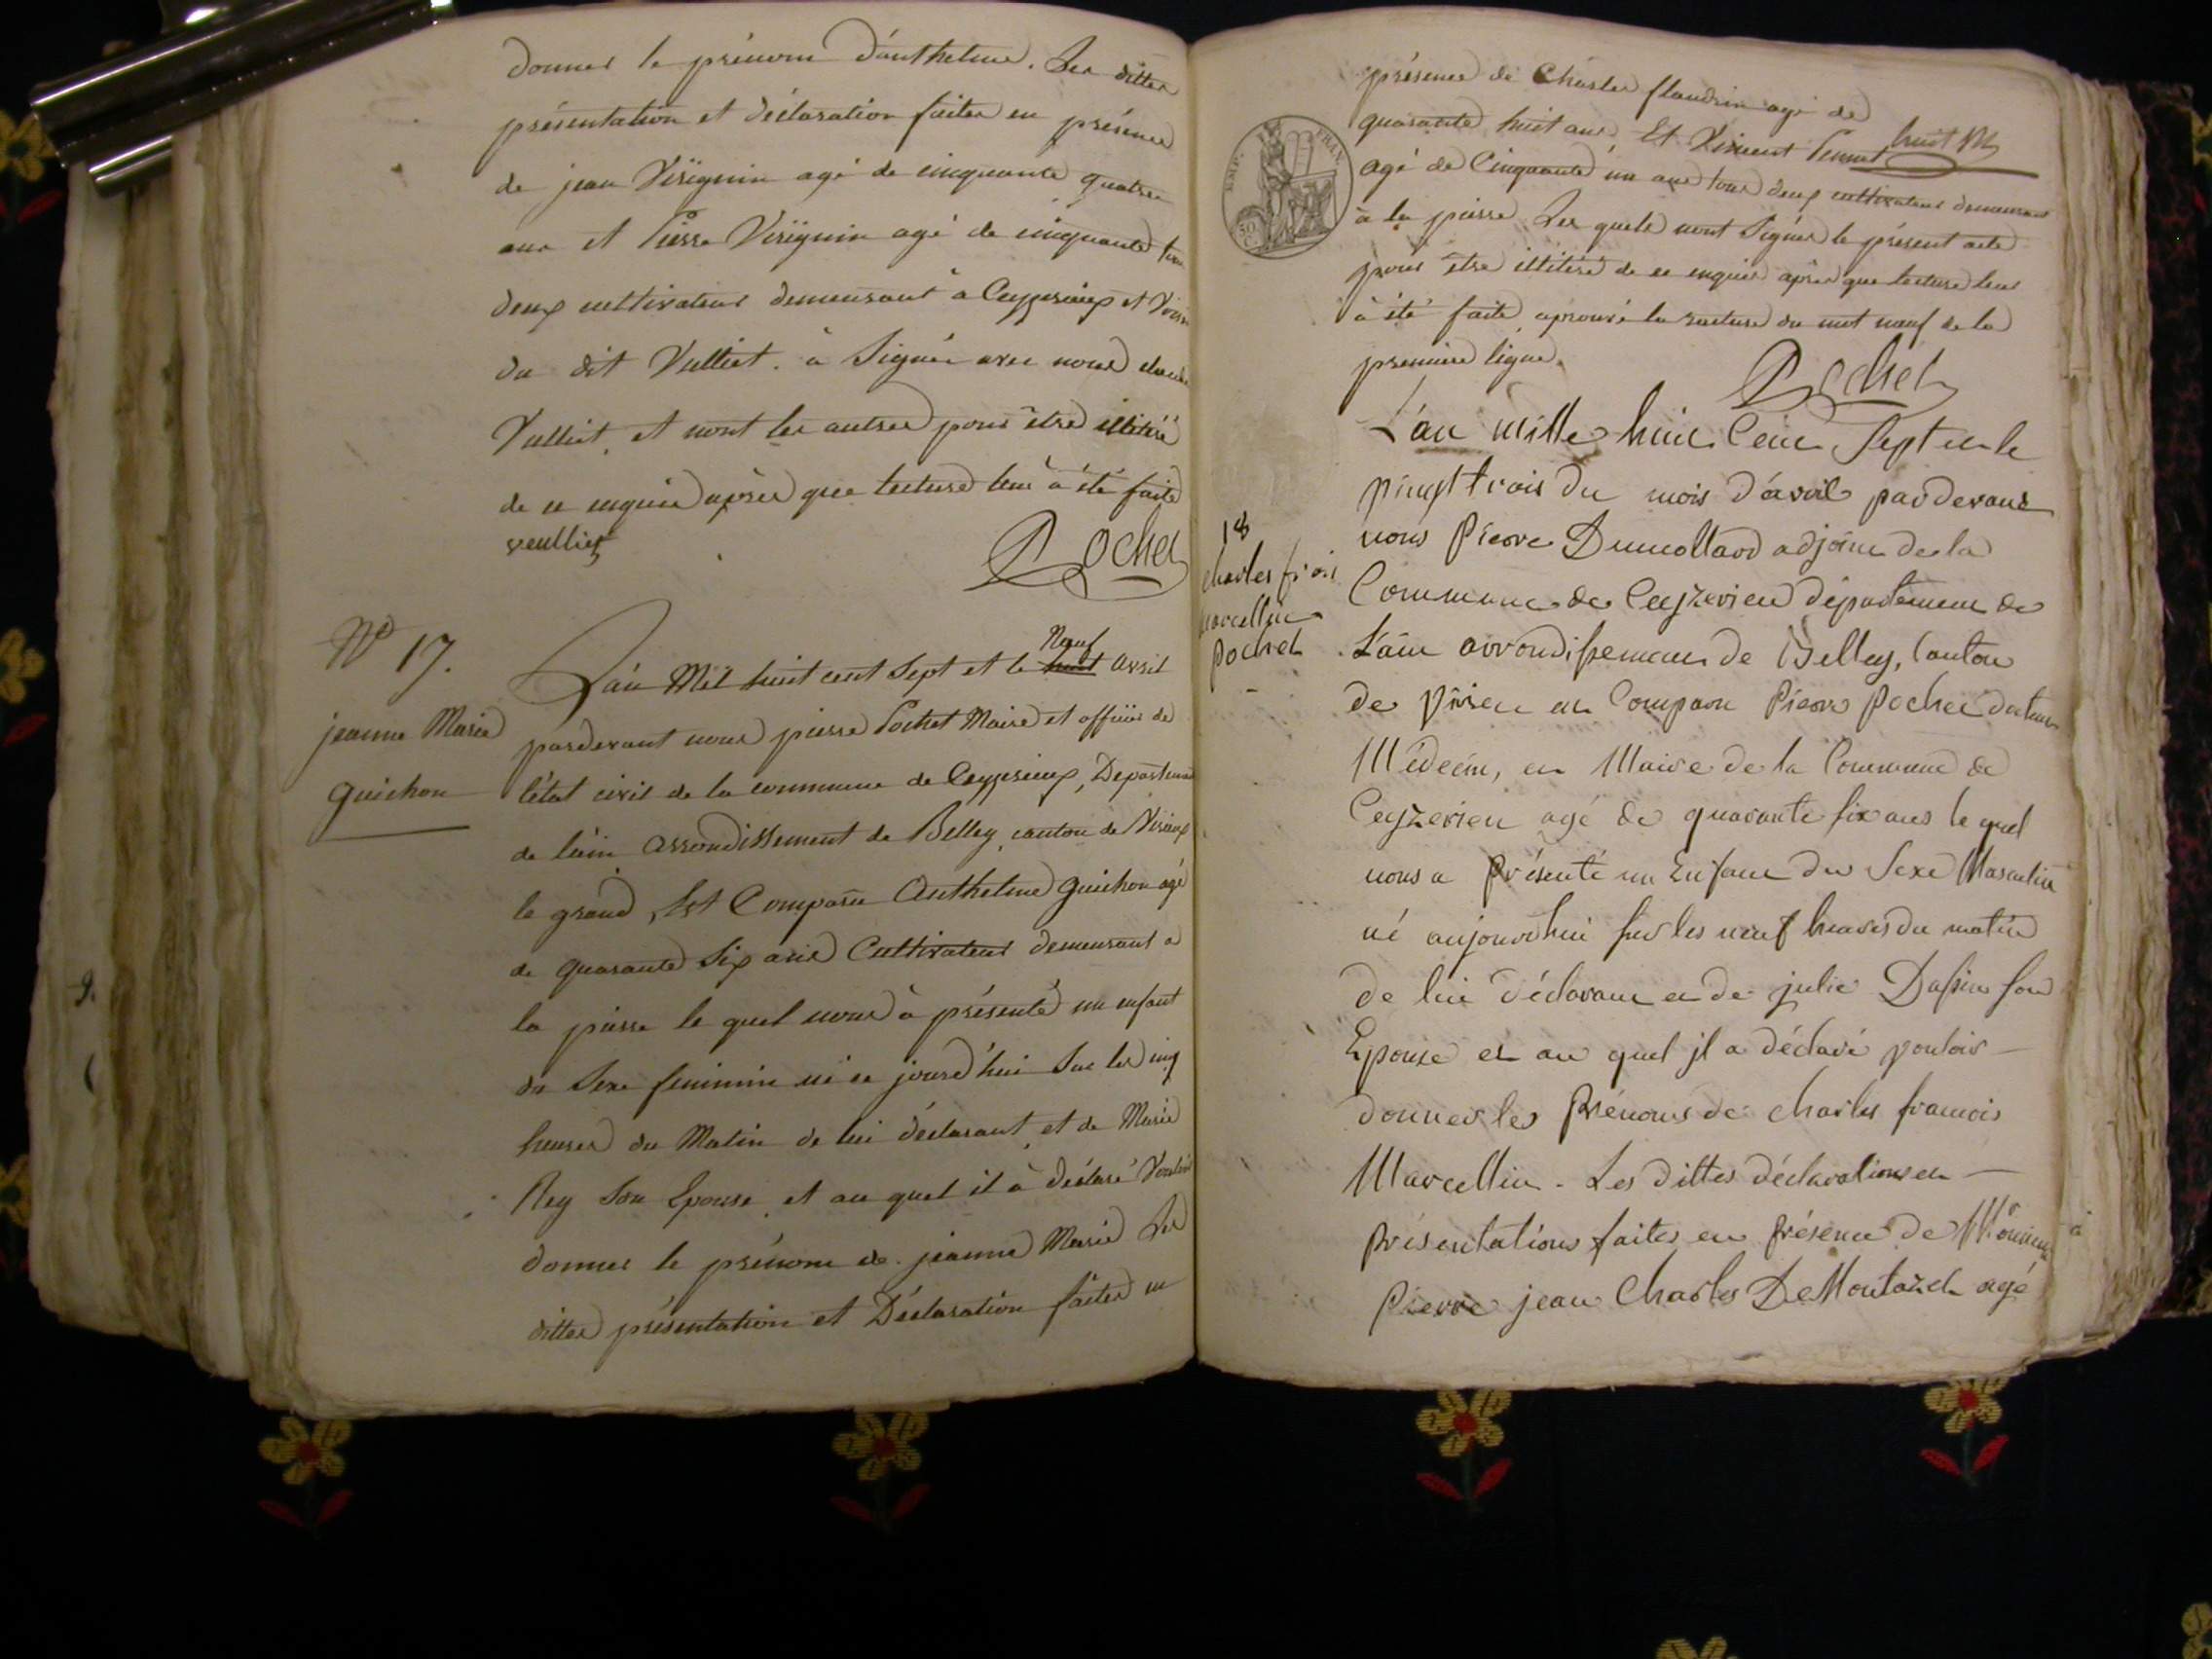 donner le prénom d'anthelme. Les dittes
présentation et déclaration faites en présence
de jean Virignin agé de cinquante quatre
ans et Pierre Virignin agé de cinquante tous
deux cultivateurs demeurant à Ceyzerieux et
du dit Vulliet. à Signé avec nous
Vulliet, et nont les autres pour être illitéré
de ce enquis après que lecture leur à été faite
veulliet
Pochet
N° 17.
jeanne Marie
Guichon
L'an Mil huit cent Sept et le Neuf huit avril
pardevant nous pierre Pochet Maire et officier de
l'état civil de la commune de Ceyzerieux, Departement
de lain arrondissement de Belley, canton de Virieux
le grand, Est Comparu Anthelme Guichon agé
de quarante Six ans Cultivateur demeurant a
la pierre le quel nous à présenté un enfant
du Sexe feminin né ce jourd'hui Sur les cinq
heures du Matin de lui déclarant, et de Marie
Rey Son Epouse, et au quel il à déclaré Vouloir
donner le prénom de jeanne Marie Les
dittes présentation et Déclaration faites en
présence de Charles flaudrin agé de
quarante huit ans, Et Vincent
huit
agé de Cinquante un ans tous deux cultivateurs demeurant
à la pierre Les quels nont Signés le présent acte
pour être illitéré de ce enquis après que lecture leur
à été faite, aprouvé la rature du mot neuf de la
premiere ligne.
Pochet
EMP. FRAN.
50 C.
18
charles frois
marcellin
pochet
L'an mille huit Cent Sept et le
vingt trois du mois d'avril pardevant
nous Pierre Dumollard adjoint de la
Commune de Ceyzerieu département de
L'ain arrondissement de Belley, Canton
de Virieu est Comparu Pierre Pochet docteur
Médecin, et Maire de la Commune de
Ceyzerieu agé de quarante six ans le quel
nous a Présenté un Enfant du Sexe Masculin
né aujourdhui sur les neuf heures du matin
de lui déclarant et de julie Dassin son
Epouse et au quel jl a déclaré vouloir
donner les Prénoms de charles francois
Marcellin. Les dittes déclarations et
Présentations faites en Présence de
Pierre jean Charles DeMontazet agé